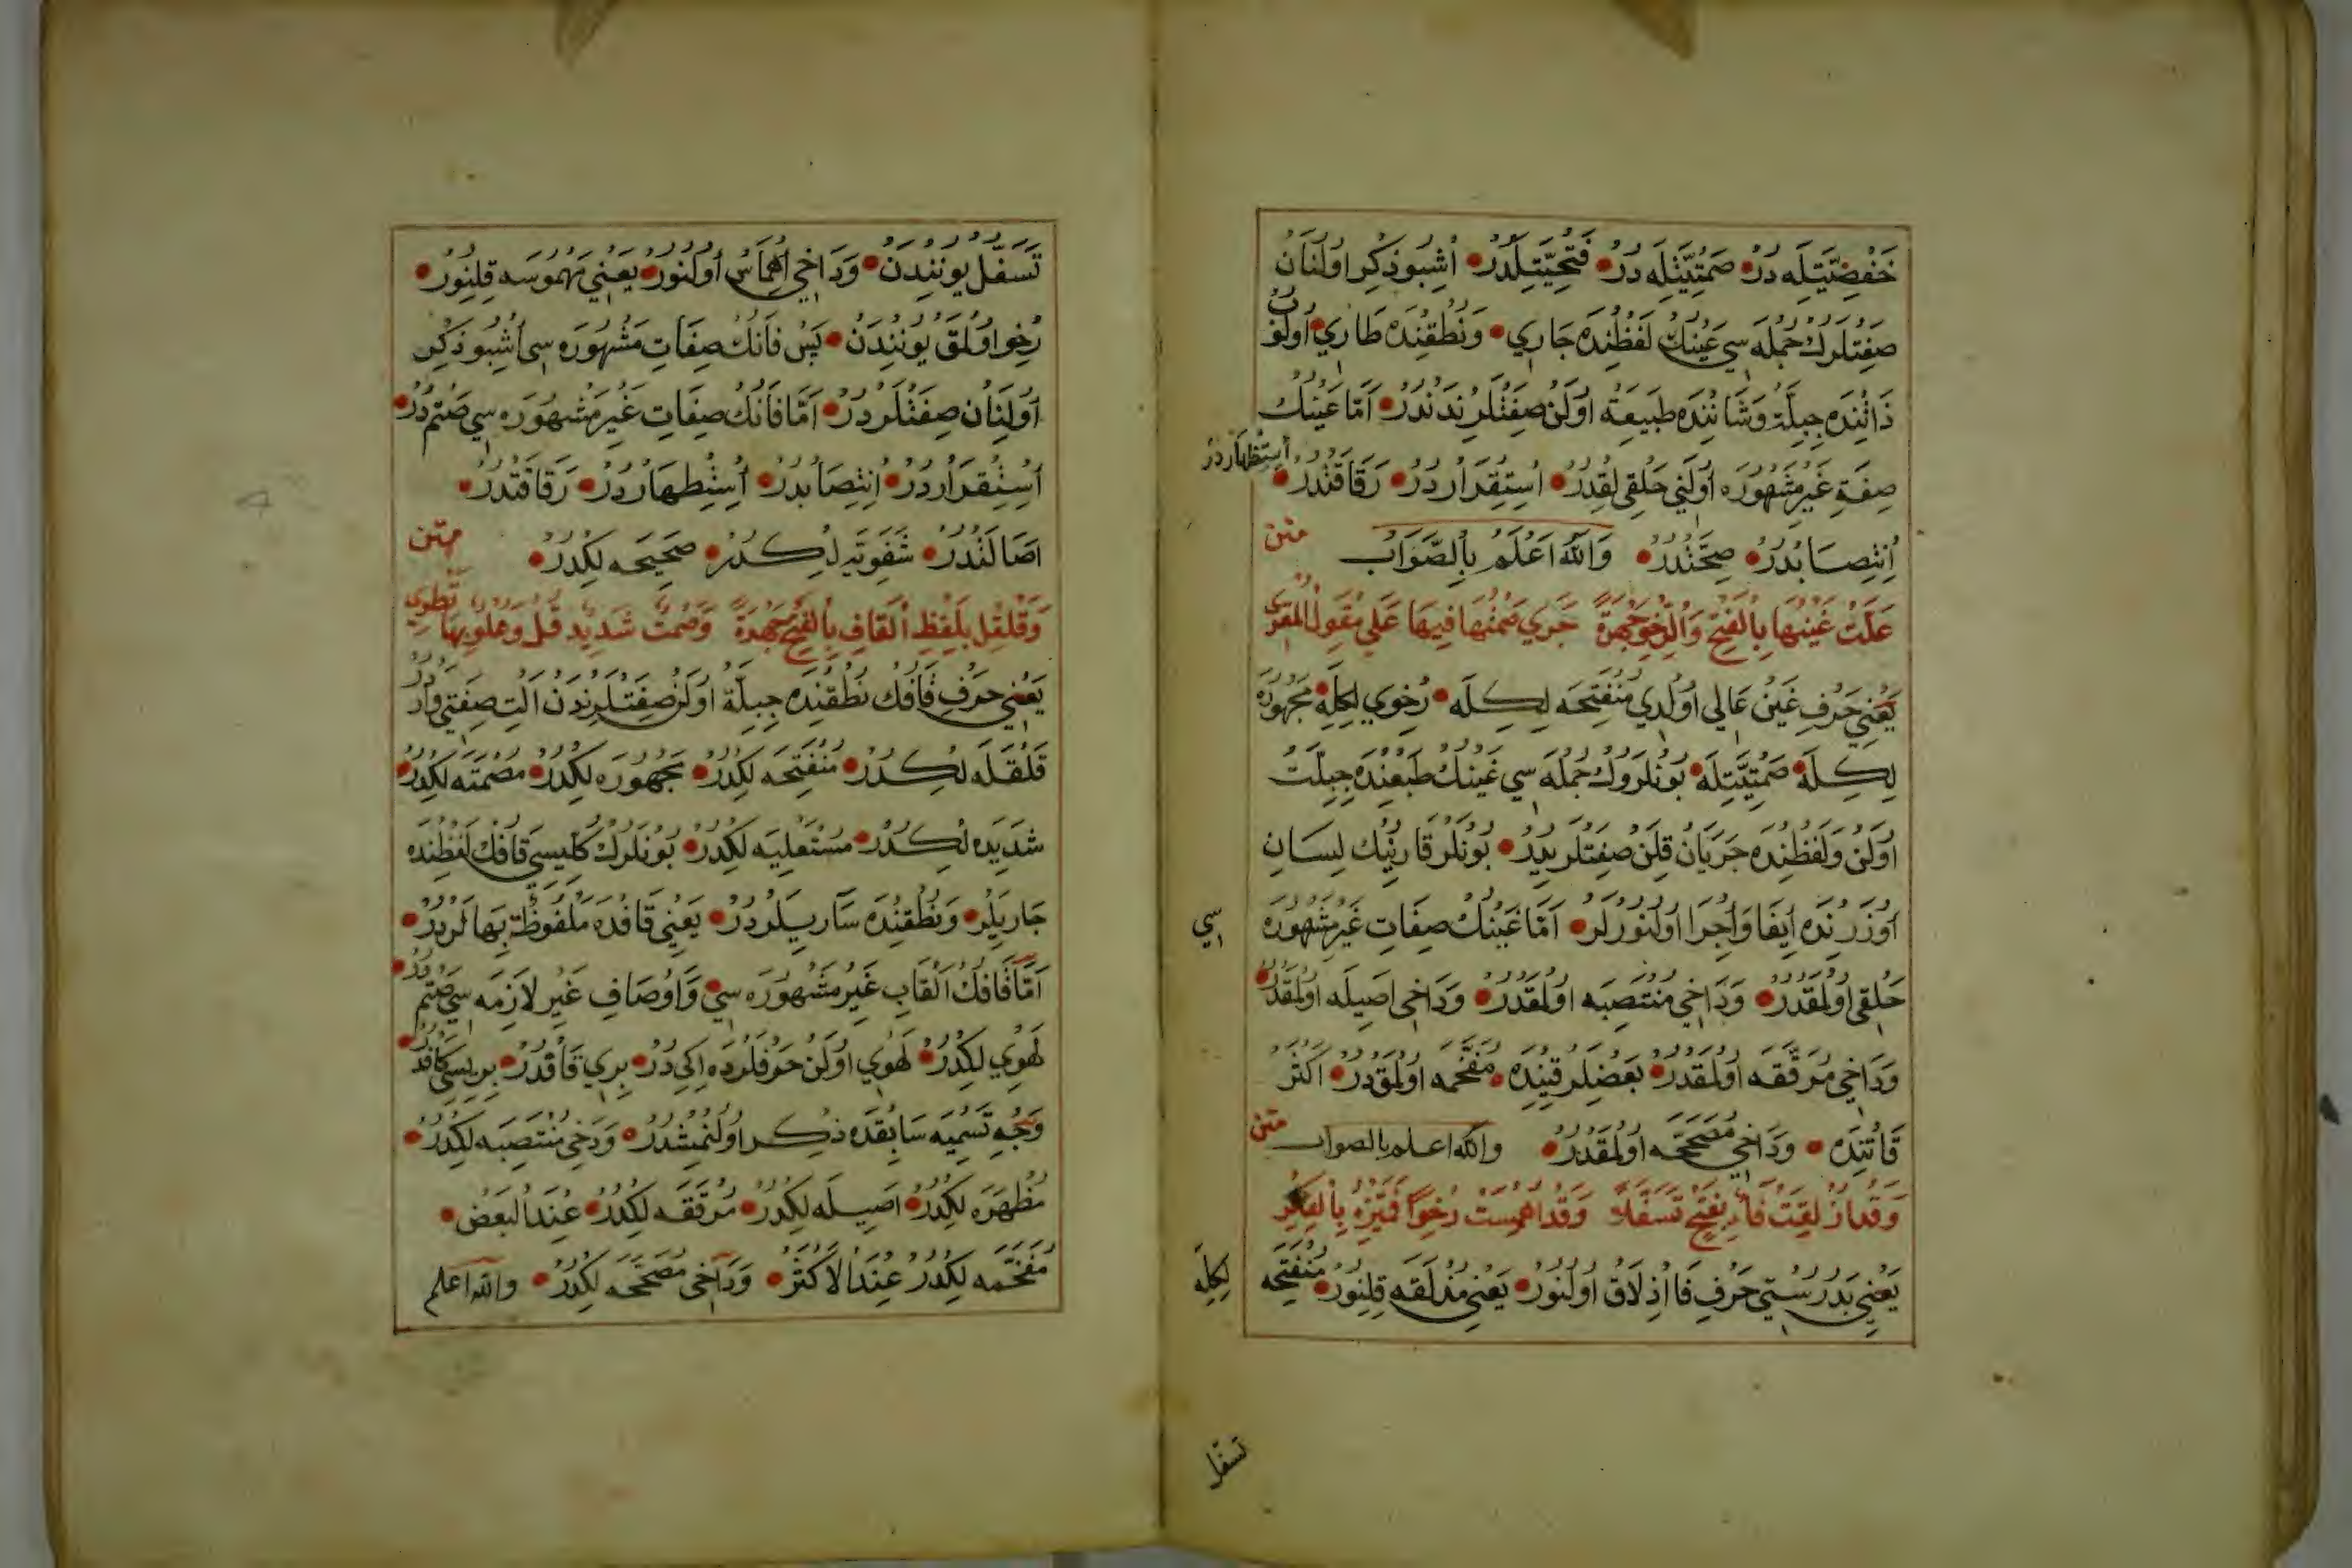 خَفْضِيَّتِلَه دُرْ صَمْتِيَّتِلَه دُرْ فَتْحِيَّتِلَدُرْ اُشْبُو ذِكِر اُولُنَانْ
صِفَتْلَرُكْ جُمْلَه سِي عَيْنُكْ لَفْظِنْدَه جَارِي وَنُطْقِنْدَه طَارِي اُولُوبْ
ذَاتِنْدَه جِبِلَّة وَشَانِنْدَه طَبِيعَة اُولَنْ صِفَتْلَرِنْدَنْدُرْ اَمَّا عَيْنُكْ
صِفَةِ غَيْرِ مَشْهُورَه اُولَنِي حَلْقِيلِقِدُرْ اِسْتِقْرَارْدُرْ رَقَاقَتْدُرْ
اِسْتِظْهَارْدُرْ
اِنْتِصَابْدُرْ صِحَّتْدُرْ وَاللّٰهُ اَعْلَمُ بِالصَّوَابْ
متن
عَلَتْ غَيْنُهَا بِالْفَتْحِ وَالرَّخْوِ جَهْرَةً جَرَى صَمْتُهَا فِيهَا عَلَى مِقْوَلِ الْمُقْرِي
يَعْنِي حَرْفِ غَيْنْ عَالِي اُولْدِي مُنْفَتِحَه لِكِلَه رِخْوِي لِكِلَه مَجْهُورَه
لِكِلَه صَمْتِيَّتِلَه بُونْلَرُوكْ جُمْلَه سِي غَيْنُكْ طَبْعِنْدَه جِبِلَّتْ
اُولَنْ وَلَفْظِنْدَه جَرَيَانْ قِلَنْ صِفَتْلَرِيدِرْ بُونْلَرْ قَارِئِنِكْ لِسَانِ
اُوزَرِنْدَه اِيفَا وَاِجْرَا اُولُنُورْلَرْ اَمَّا غَيْنُكْ صِفَاتِ غَيْرِ مَشْهُورَه
سِي
حَلْقِي اُولْمَقْدُرْ وَدَاخِي مُنْتَصِبَه اُولْمَقْدُرْ وَدَاخِي اَصِيلَه اُولْمَقْدُرْ
وَدَاخِي مُرَقَّقَه اُولْمَقْدُرْ بَعْضِلَرْ قَتِنْدَه مُفَخَّمَه اُولْمَقْدُرْ اَكْثَرْ
قَاتِنْدَه وَدَاخِي مُصَحَّحَه اُولْمَقْدُرْ والله اعلم بالصواب
متن
وَقَدْ اَذْلَقَتْ فَاءٌ بِفَتْحٍ تَسَفَّلَا وَقَدْ اَهْمَسَتْ رُخْوًا فَمَيِّزْهُ بِالْفِكْرِ
يَعْنِي بَدُرُسْتِي حَرْفِ فَا اِذْلَاقْ اُولُنُورْ يَعْنِي مُذْلَقَه قِلِنُورْ مُنْفَتِحَه
لِكِلَه
تسفّل
تَسَفُّلْ يُونِنْدَنْ وَدَاخِي اِهْمَاسْ اُولُنُورْ يَعْنِي مَهْمُوسَه قِلِنُورْ
رِخْو اُولْمَقْ يُونِنْدَنْ پَسْ فَانُكْ صِفَاتِ مَشْهُورَه سِي اُشْبُو ذِكِر
اُولُنَانْ صِفَتْلَرْدُرْ اَمَّا فَانُكْ صِفَاتِ غَيْرِ مَشْهُورَه سِي صَتْمْدُرْ
اِسْتِقْرَارْدُرْ اِنْتِصَابْدُرْ اِسْتِظْهَارْدُرْ رَقَاقَتْدُرْ
اَصَالَتْدُرْ شَفَوِيَّه لِكْدُرْ صَحِيحَه لِكْدُرْ
متن
وَقَلْقِلْ بِلَفْظِ الْقَافِ بِالْفَتْحِ جَهْرَةً وَصَمْتٌ شَدِيدٌ قُلْ وَعُلْوٌ بِهَا تَطْوِي
يَعْنِي حَرْفِ قَافُكْ نُطْقِنْدَه جِبِلَّة اُولَنْ صِفَتْلَرِنْدَنْ اَلْتِ صِفَتِي وَارْدُرْ
قَلْقَلَه لِكْدُرْ مُنْفَتِحَه لِكْدُرْ مَجْهُورَه لِكْدُرْ مُصْمَتَه لِكْدُرْ
شَدِيدَه لِكْدُرْ مُسْتَعْلِيَه لِكْدُرْ بُونْلَرُكْ كُلِّيسِي قَافُكْ لَفْظِنْدَه
جَارِيلَرْ وَنُطْقِنْدَه سَارِيلَرْدُرْ يَعْنِي قَافْدَه مَلْفُوظَة بِهَالَرْدُرْ
اَمَّا قَافُكْ اَلْقَابِ غَيْرِ مَشْهُورَه سِي وَاَوْصَافِ غَيْرِ لَازِمَه سِي صَتْمْدُرْ
لَهَوِي لِكْدُرْ لَهَوِي اُولَنْ حَرْفْلَرْدَه اِكِي دُرْ بِرِي قَافْدُرْ بِرِيسِي كَافْدُرْ
وَجْهِ تَسْمِيَه سَابِقْدَه ذِكِر اُولُنْمِشْدُرْ وَدَخِي مُنْتَصِبَه لِكْدُرْ
مُظْهَرَه لِكْدُرْ اَصِيلَه لِكْدُرْ مُرَقَّقَه لِكْدُرْ عِنْدَ الْبَعْضْ
مُفَخَّمَه لِكْدُرْ عِنْدَ الْاَكْثَرْ وَدَاخِي مُصَحَّحَه لِكْدُرْ والله اعلم